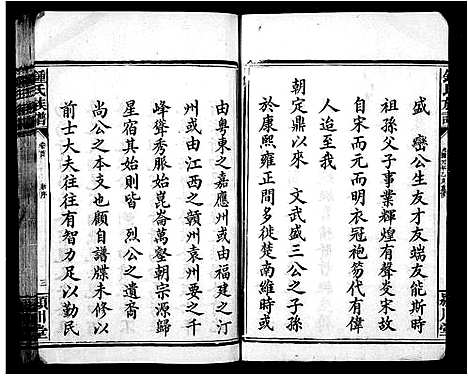 盛 巒公生友才友端友能斯時
祖孫父子事業輝煌有聲炎宋故
自宋而元而明衣冠袍笏代有偉
人迨我
朝定鼎以來 文武盛三公之子孫
於康熙雍正間多徙楚南維時或
由粵東之嘉應州或由福建之汀
州或由江西之贛州袁州要之千
峰聳秀脈始崑崙萬壑朝宗源歸
星宿其始則皆 烈公之遺裔
尚公之本支也顧自譜牒未修以
前士大夫往往有智力足以勤民
鍾氏族譜
卷首
序
三
潁川堂